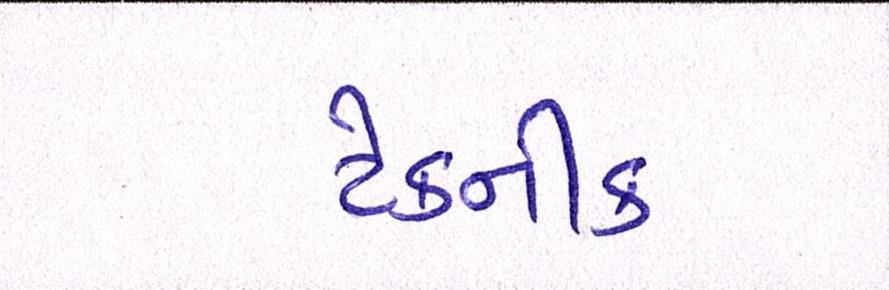 ટેકનીક